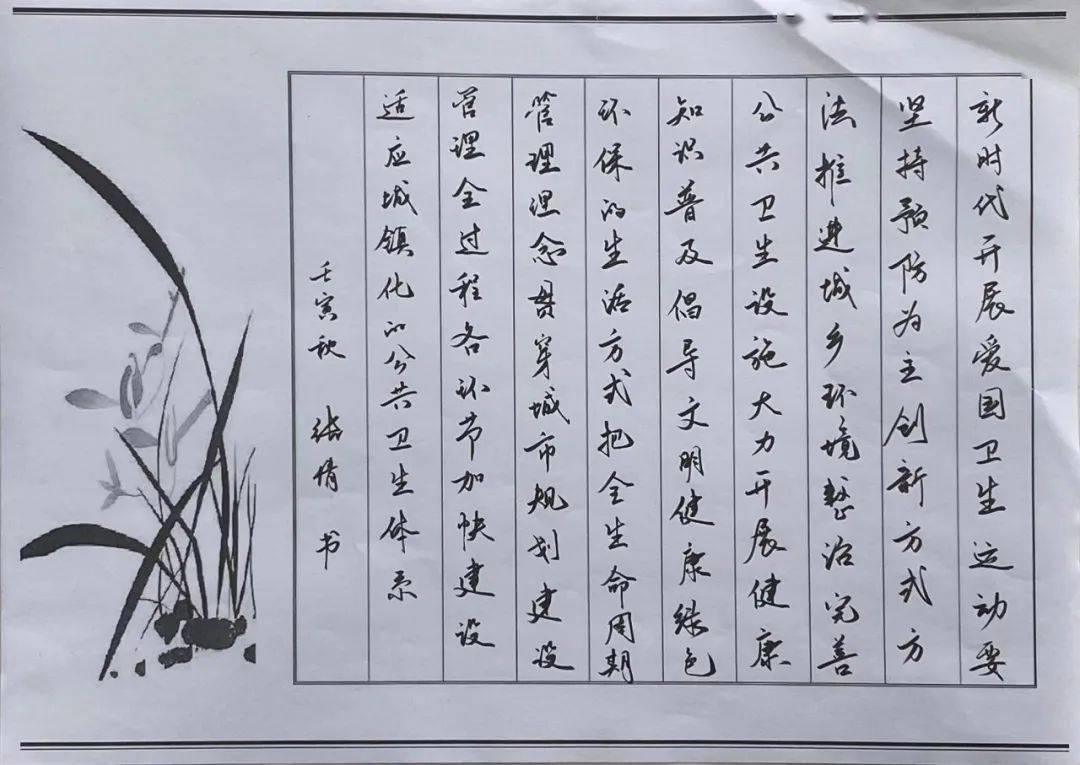 新时代开展爱国卫生运动要
坚持预防为主创新方式方
法推进城乡环境整治完善
公共卫生设施大力开展健康
知识普及倡导文明健康绿色
环保的生活方式把全生命周期
管理理念贯穿城市规划建设
管理全过程各环节加快建设
适应城镇化的公共卫生体系
壬寅秋 倩 书